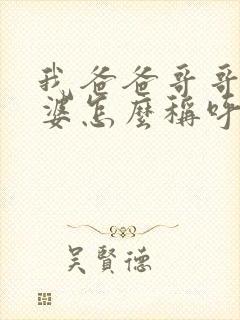 我爸爸哥哥
婆怎麼稱呼
吳賢德